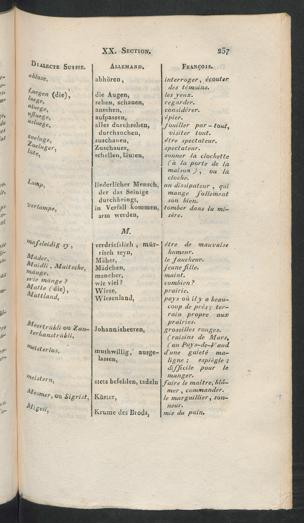 XX. SECTION. 257
DIALECTE SUISSE. ALLEMAND. FRANÇOIS.
ablose, abhören, interroger, écouter
des témoins.
Luegen (die), die Augen, les yeux.
luege, sehen, schauen, regarder.
aluege, ansehen, considérer.
ufluege, aufpassen, épier.
usluege, alles durchsehen, fouiller par-tout,
durchsuchen, visiter tout.
zueluege, zuschauen, être spectateur.
Zueluger, Zuschauer, spectateur.
lüte, schellen, läuten, sonner la clochette
(à la porte de la
maison), ou la
cloche.
Lump, liederlicher Mensch, un dissipateur, qui
der das Seinige mange follement
durchbringt, son bien.
verlumpe, in Verfall kommen, tomber dans la mi-
arm werden, sère.
M.
verdriesslich, mür- être de mauvaise
risch seyn, humeur.
Mäder, Mäher, le faucheur.
Maidli, Maitsche, Mädchen, jeune fille.
mänge, mancher, maint.
wie mänge? wie viel? combien?
Matte (die), Wiese, prairie.
Mattland, Wiesenland, pays où il y a beau-
coup de prés; ter-
rain propre aux
prairies.
Meertrübli ou Zan- Johannisbeeren, groseilles rouges.
(raisins de Mars,
(au Pays-de-Vaud
meisterlos, muthwillig, ausge- d'une gaieté ma-
lassen, ligne; espiègle;
difficile pour le
manger.
meistern, stets befehlen, tadeln, faire le maître, blâ-
mer, commander.
Mesmer, ou Sigrist, Küster, le marguillier, son-
neur.
Krume des Brods, mie du pain.